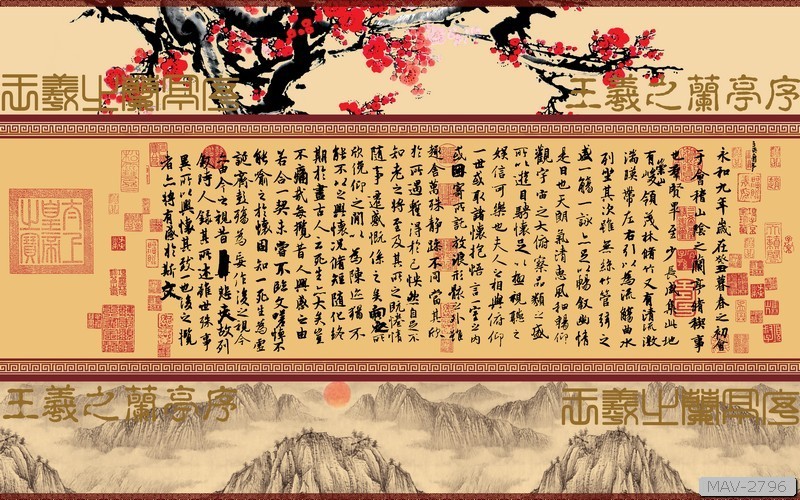 王羲之蘭亭序
王羲之蘭亭序
永和九年歲在癸丑暮春之初會
于會稽山陰之蘭亭脩稧事
也羣賢畢至少長咸集此地
有崇山峻領茂林脩竹又有清流激
湍暎帶左右引以為流觴曲水
列坐其次雖無絲竹管弦之
盛一觴一詠亦足以暢敘幽情
是日也天朗氣清惠風和暢仰
觀宇宙之大俯察品類之盛
所以遊目騁懷足以極視聽之
娛信可樂也夫人之相與俯仰
一世或取諸懷抱悟言一室之內
或因寄所託放浪形骸之外雖
趣舍萬殊靜躁不同當其欣
於所遇蹔得於己怏然自足不
知老之將至及其所之既惓情
隨事遷感慨係之矣向之所
欣俛仰之閒以為陳迹猶不
能不以之興懷況脩短隨化終
期於盡古人云死生亦大矣豈
不痛哉每攬昔人興感之由
若合一契未嘗不臨文嗟悼不
能喻之於懷固知一死生為虛
誕齊彭殤為妄作後之視今
亦由今之視昔悲夫故列
敘時人錄其所述雖世殊事
異所以興懷其致一也後之攬
者亦將有感於斯文
王羲之蘭亭序
王羲之蘭亭序
MAV-2796